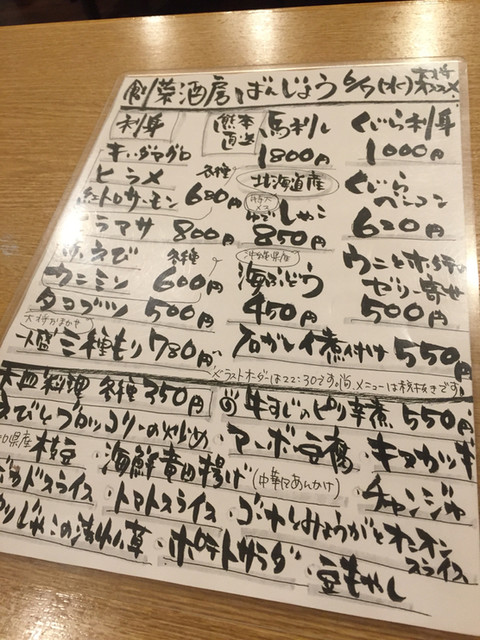 創菜酒房 ばんじょう 6/5(水) 本日オススメ
刺身
熊本直送 馬刺し 1800円
くじら刺身 1000円
キハダマグロ
ヒラメ 各種 680円
北海道産
くじらベーコン 620円
紅トロサーモン
ヒラマサ 800円
ゆでしゃこ 850円
えび 各種
沖縄県産
ウニとホタテ ゼリー寄せ 500円
カニミソ 600円
海ぶどう 450円
タコブツ 500円
大将おまかせ
三種もり 780円
石がレイ煮付け 550円
※ラストオーダーは22:30です。尚、メニューは税抜きです
大皿料理 各種 350円
牛すじのピリ辛煮 550円
えびとブロッコリーの炒め
マーボ豆腐
キヌカツギ
県産 枝豆
海鮮竜田揚げ(中華风あんかけ)
チャンジャ
スライス
トマトスライス
ゴーヤとみょうがとオニオンスライス
ポテトサラダ
豆もやし